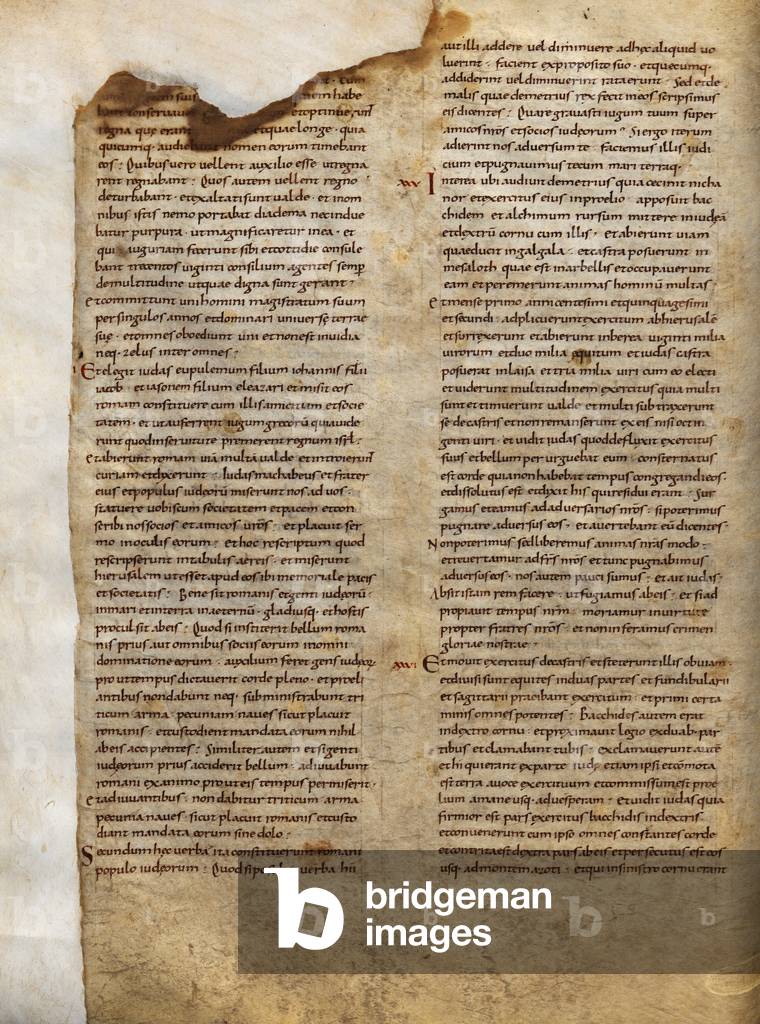 cum
suis nem habe
et optinuer̄
regna que erant et quae longe · quia
quicumq· audiebant nomen eorum timebant
eos : Quibus vero vellent auxilio esse ut regna
rent regnabant : Quos autem vellent regno
deturbabant · et exaltati sunt valde · et in om
nibus istis nemo portabat diadema nec indue
batur purpura · ut magnificaretur in ea · et
quia curiam fecerunt sibi et cottidie consule
bant trecentos viginti consilium agentes semp
de multitudine ut quae digna sunt gerant :
et committunt uni homini magistratum suum
per singulos annos et dominari universe terrae
sue · et omnes oboediunt uni et non est invidia
neq· zelus inter omnes :
Et elegit iudas eupulemum filium iohannis filii
iacob · et iasonem filium eleazari et misit eos
romam constituere cum illis amicitiam et socie
tatem · et ut auferrent iugum grecorū quia vide
runt quod in servitute premerent regnum isrl̄ :
et abierunt romam viā multā valde et introierun̄
curiam et dixerunt : Iudas machabeus et frater
eius et populus iudeorū miserunt nos ad vos :
statuere vobiscum societatem et pacem et con
scribi nos socios et amicos vr̄os : et placuit ser
mo in oculis eorum : et hoc rescriptum quod
rescripserunt in tabulis aereis · et miserunt
hierusalem ut esset apud eos ibi memoriale pacis
et societatis : Bene sit romanis et genti iudeorū ·
in mari et in terra in aeternū · gladiusq· et hostis
procul sit ab eis : Quod si institerit bellum roma
nis prius aut omnibus sociis eorum in omni
dominatione eorum : auxilium feret gens iudeor·
pro ut tempus dictaverit corde pleno · et preli
antibus non dabunt neq· subministrabunt tri
ticum arma · pecuniam naves sicut placuit
romanis : et custodient mandata eorum nihil
ab eis accipientes : Similiter autem et si genti
iudeorum prius acciderit bellum : adiuvabunt
romani ex animo pro ut eis tempus permiserit ·
et adiuvantibus : non dabitur triticum arma
pecunia naves : sicut placuit romanis et custo
diant mandata eorum sine dolo :
Secundum hec verba ita constituerunt romani
populo iudeorum : Quod si post verba hii
aut illi addere vel diminuere ad hec aliquid vo
luerint : facient ex proposito suo · et quecumq·
addiderint vel diminuerint rata erunt : Sed et de
malis quae demetrius rex fecit in eos scripsimus
ei dicentes : Quare gravasti iugum tuum super
amicos nr̄os et socios iudeorum ? Si ergo iterum
adierint nos adversum te : faciemus illis iudi
cium et pugnavimus tecum mari terraq·
xxv Interea ubi audiunt demetrius quia cecinit nicha
nor et exercitus eius in proelio · apposuit bac
chidem et alchimum rursum mittere in iudeā
et dextrū cornu cum illis · et abierunt viam
quae ducit in galgala : et castra posuerunt in
mesaloth quae est in arbellis et occupaverunt
eam et peremerunt animas hominū multas ·
et mense primo anni centesimi et quinquagesimi
et secundi : adplicuerunt exercitum ad hierusalē
et surrexerunt et abierunt in berea viginti milia
virorum et duo milia equitum et iudas castra
posuerat in laisa et tria milia viri cum eo electi
et viderunt multitudinem exercitus quia multi
sunt et timuerunt valde et multi subtraxerunt
se de castris et non remanserunt ex eis nisi octin
genti viri · et vidit iudas quod defluxit exercitus
suus et bellum perurguebat eum : consternatus
est corde quia non habebat tempus congregandi eos ·
et dissolutus est et dixit his qui residui erant : Sur
gamus et eamus ad adversarios nr̄os : si poterimus
pugnare adversus eos · et avertebant eū dicentes ·
Non poterimus sed liberemus animas nr̄as modo :
et revertamur ad fr̄s nr̄os et tunc pugnabimus
adversus eos · nos autem pauci sumus : et ait iudas ·
Absit istam rem facere : ut fugiamus ab eis · et si ad
propiavit tempus nr̄m : moriamur in virtute
propter fratres nr̄os : et non inferamus crimen
gloriae nostrae ·
xxvi Et movit exercitus de castris et steterunt illis obviam ·
et divisi sunt equites in duas partes et fundibularii
et sagittarii praeibant exercitum : et primi certa
minis omnes potentes : Bacchides autem erat
in dextro cornu : et proximavit legio ex duab· par
tibus et clamabant tubis : exclamaverunt autē
et hi qui erant ex parte iudę etiam ipsi et commota
est terra a voce exercituum et commissum est proe
lium a mane usq· ad vesperam : et vidit iudas quia
firmior est pars exercitus bacchidis in dextris
et convenerunt cum ipso omnes constantes corde
et contrita est dextra pars ab eis et persecutus est eos
usq· ad montem azoti : et qui in sinistro cornu erant
bridgeman
images